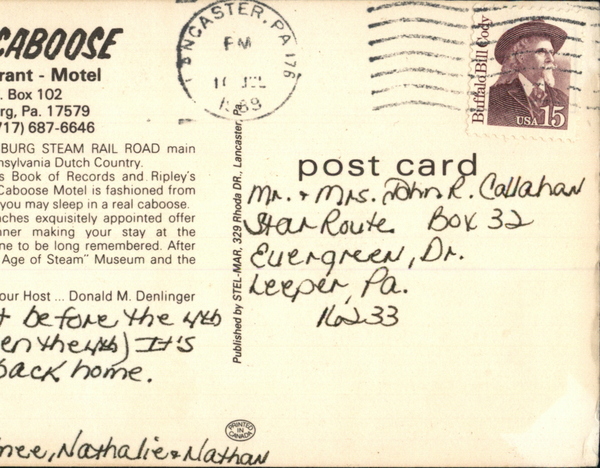 CABOOSE
rant - Motel
. Box 102
rg, Pa. 17579
717) 687-6646
BURG STEAM RAIL ROAD main
nsylvania Dutch Country.
s Book of Records and Ripley's
Caboose Motel is fashioned from
you may sleep in a real caboose.
aches exquisitely appointed offer
nner making your stay at the
ne to be long remembered. After
Age of Steam" Museum and the
our Host ... Donald M. Denlinger
t before the 4th
en the 4th) It's
back home.
mee, Nathalie & Nathan
Published by STEL-MAR, 329 Rhoda DR., Lancaster, Pa.
PRINTED IN CANADA
LANCASTER, PA 176
PM
JUL
Buffalo Bill Cody
USA 15
post card
Mr. & Mrs. John R. Callahan
Star Route Box 32
Evergreen, Dr.
Leeper, Pa.
16233